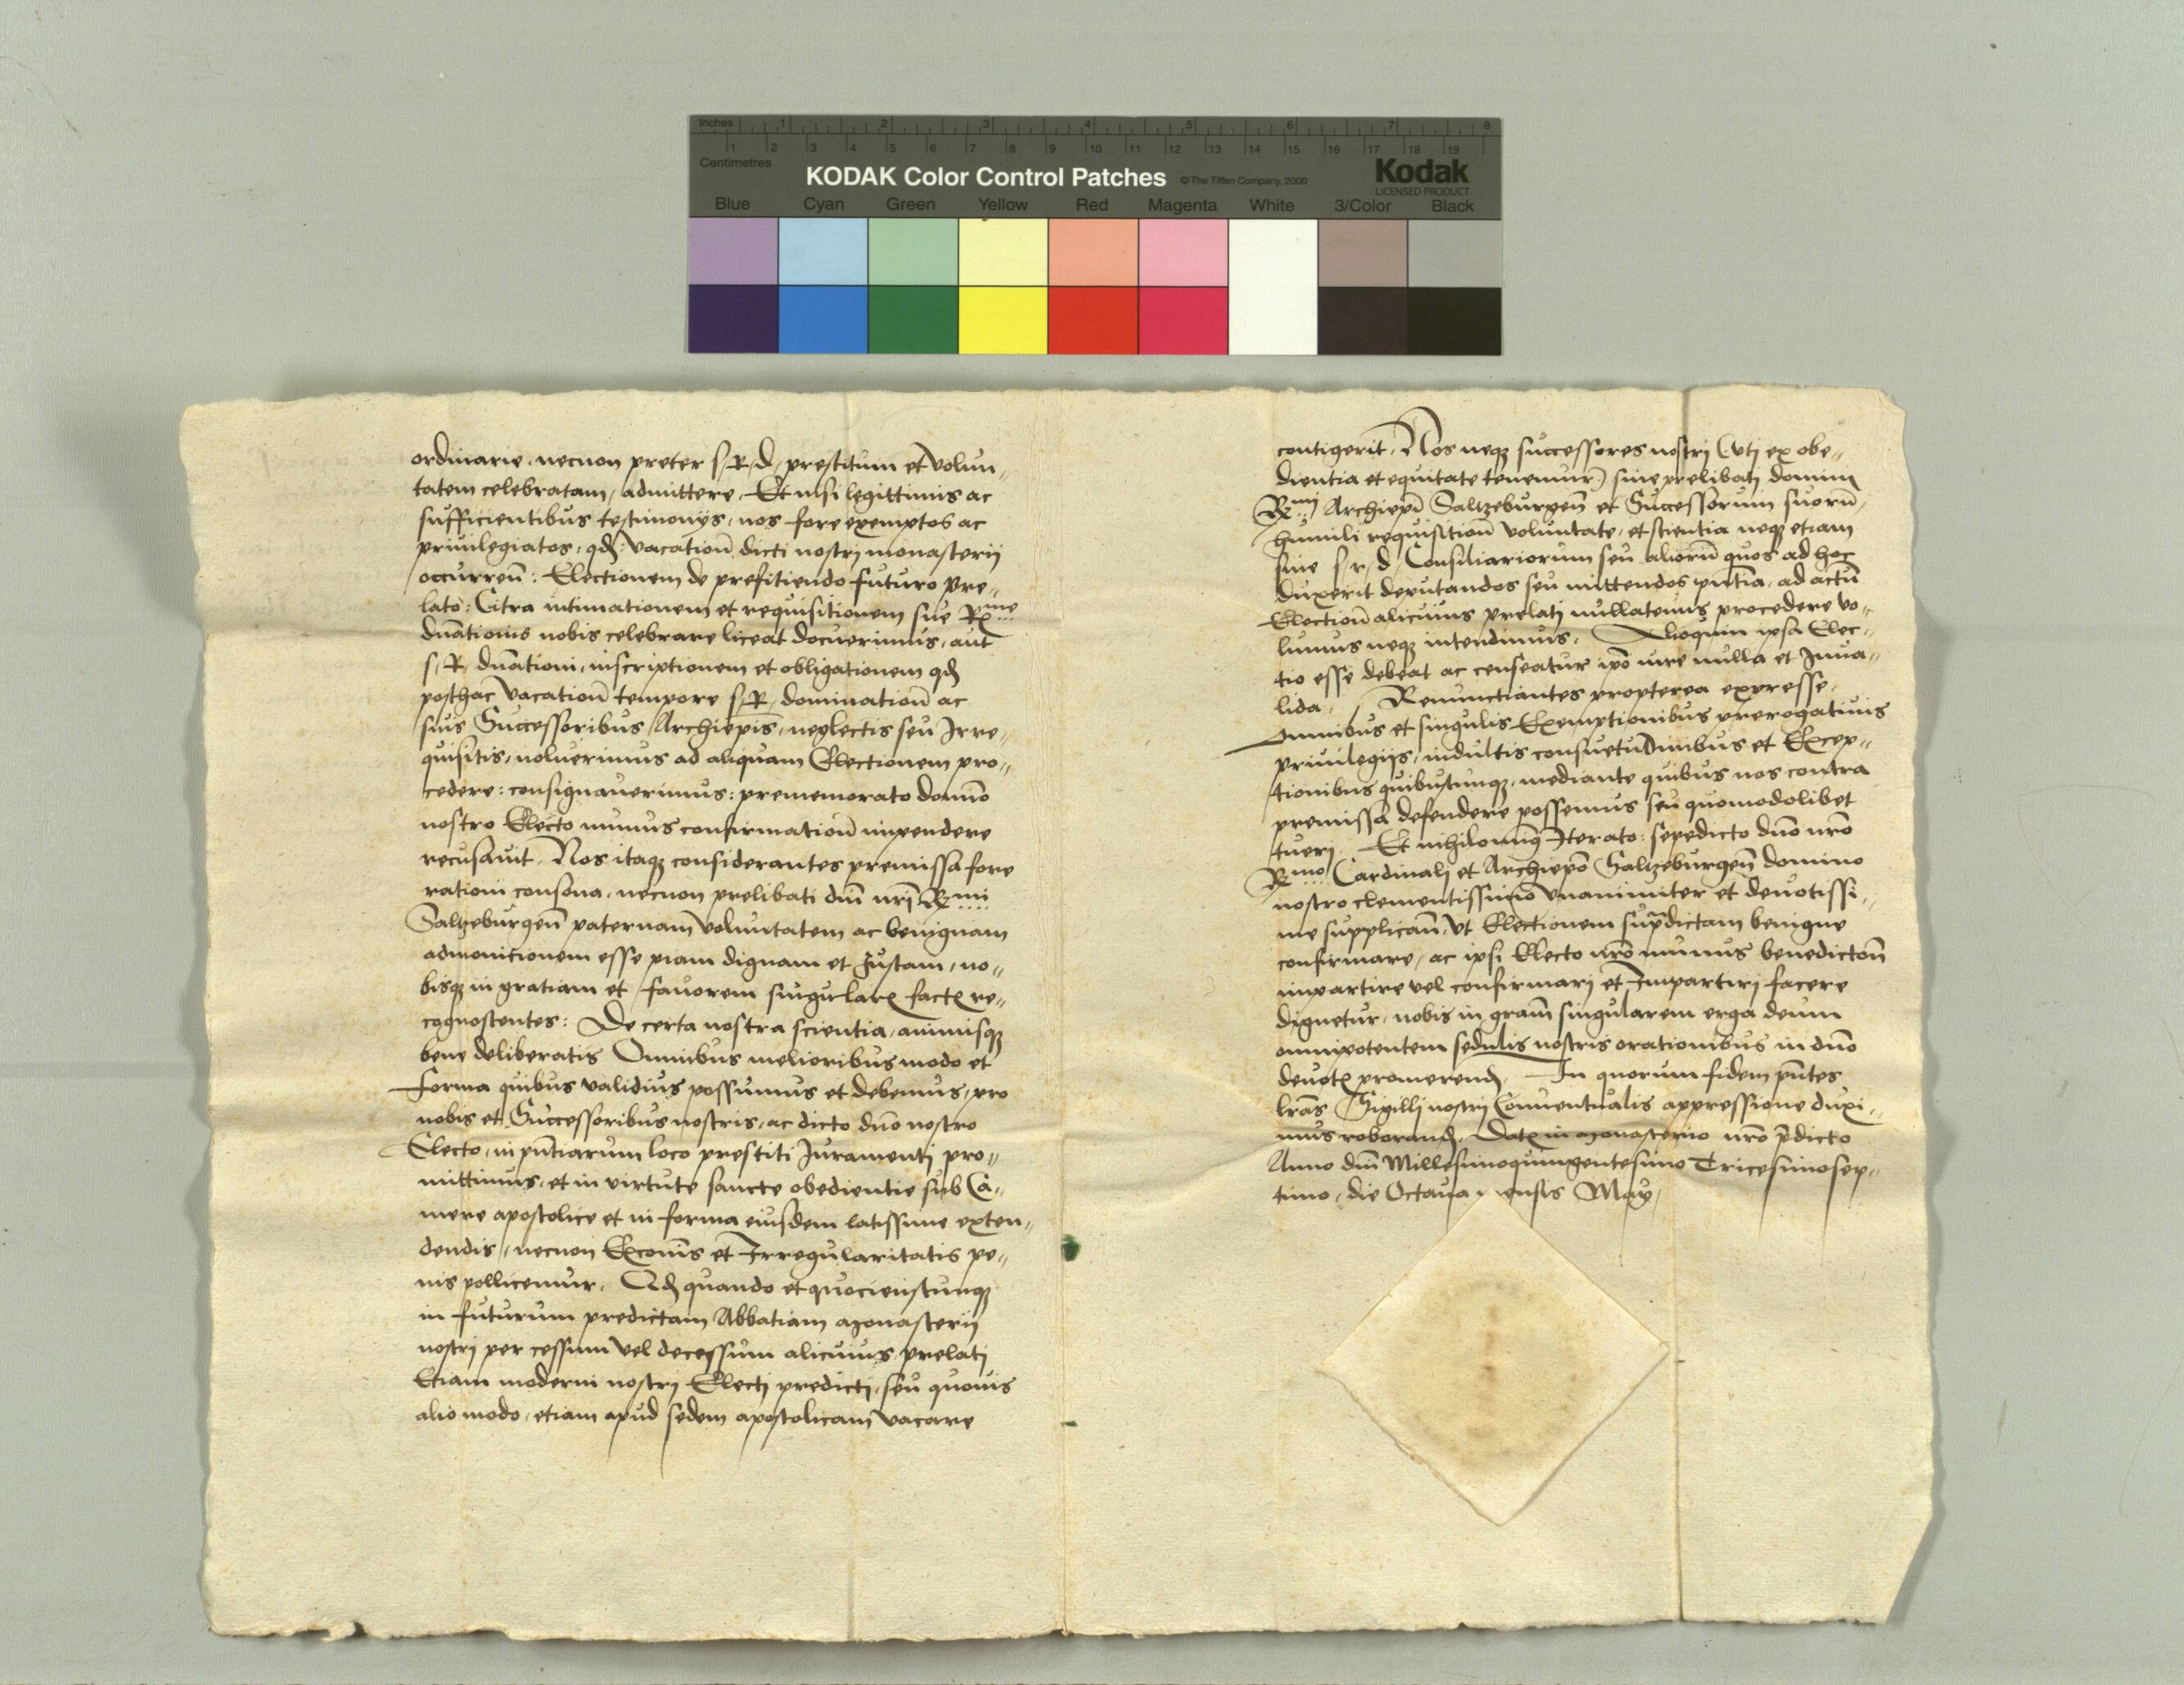 Inches 1 2 3 4 5 6 7 8
1 2 3 4 5 6 7 8 9 10 11 12 13 14 15 16 17 18 19
Centimetres
KODAK Color Control Patches © The Tiffen Company, 2000 Kodak
LICENSED PRODUCT
Blue Cyan Green Yellow Red Magenta White 3/Color Black
ordinarie, necnon preter s, R, d, prestitum et volun„
tatem celebratam, admittere, Et nisi legittimis ac
sufficientibus testimonijs, nos fore exemptos ac
priuilegiatos, qđ: vacationū dicti nostrj monasterij
occurreñ: Electionem de prefitiendo futuro Pre„
lato: Citra intimationem et requisitionem sue Rme
dnātionis nobis celebrare liceat docuerimus, aut
s, R, dnātioni, inscriptionem et obligationem qđ
posthac vacationū tempore s, R, dominationū ac
suis Successoribus Archiepis, neglectis seu Irre„
quisitis, noluerimus ad aliquam Electionem pro„
cedere: consignauerimus: prememorato domīo
nostro Electo munus confirmationū impendere
recusauit, Nos itaqȝ considerantes premissa fore
rationi consona, necnon prelibati dni nrī Rmi
Saltzeburgeñ paternam voluntatem ac benignam
admonicionem esse piam dignam et Justam, no„
bisqȝ in gratiam et fauorem singulare facte re„
cognoscentes: De certa nostra scientia, animisqȝ
bene deliberatis Omnibus melioribus modo et
forma quibus validius possumus et debemus, pro
nobis et Successoribus nostris, ac dicto dnō nostro
Electo, in pntiarum loco prestiti Juramentj pro„
mittimus, et in virtute sancte obedientie sub Ca„
mere apostolice et in forma eiusdem latissime exten„
dendis, necnon Excoms et Irregularitatis pe„
nis pollicemur, Qđ quando et quocienscunqȝ
in futurum predictam Abbatiam Monasterij
nostrj per cessum vel decessum alicuius prelatj
Etiam moderni nostrj Electj predictj, seu quouis
alio modo, etiam apud sedem apostolicam vacare
contigerit, Nos neqȝ successores nostrj (vtj ex obe„
dientia et equitate tenemur) sine prelibatj dominj
Rmj Archiepi Saltzeburgeñ et Successorum suorū,
humili requisitionū voluntate, et scientia neqȝ etiam
sine s, r, d, Consiliariorum seu aliorū quos ad hoc
duxerit deputandos seu mittendos pntia, ad actū
Electionū alicuius prelatj nullatenus procedere vo„
lumus neqȝ intendimus, Alioquin ipsa Elec„
tio esse debeat ac censeatur ipō iure nulla et Inua„
lida, Renunctiantes propterea expresse,
omnibus et singulis Exemptionibus prerogatiuis
priuilegijs, indultis consuetudinibus et Excep„
tionibus quibuscunqȝ, mediante quibus nos contra
premissa defendere possemus seu quomodolibet
tuerj, Et nihilominꝰ Iterato: sepedicto dnō nrō
Rmo Cardinalj et Archiepō Saltzeburgeñ domino
nostro clementissimo vnanimiter et deuotissi„
me supplicañ, vt Electionem supdictam benigne
confirmare, ac ipsi Electo nrō munus benedictoñ
impartire vel confirmarj et Impartirj facere
dignetur, nobis in gram singularem erga deum
omnipotentem sedulis nostris orationibus in dnō
deuote promerenđ, In quorum fidem pntes
lras Sigilli nostrj Conuentualis appressione duxi„
mus roboranđ, Date in Monasterio nrō pdicto
Anno dni Millesimoquingentesimo Tricesimosep„
timo, die Octaua mensis May,